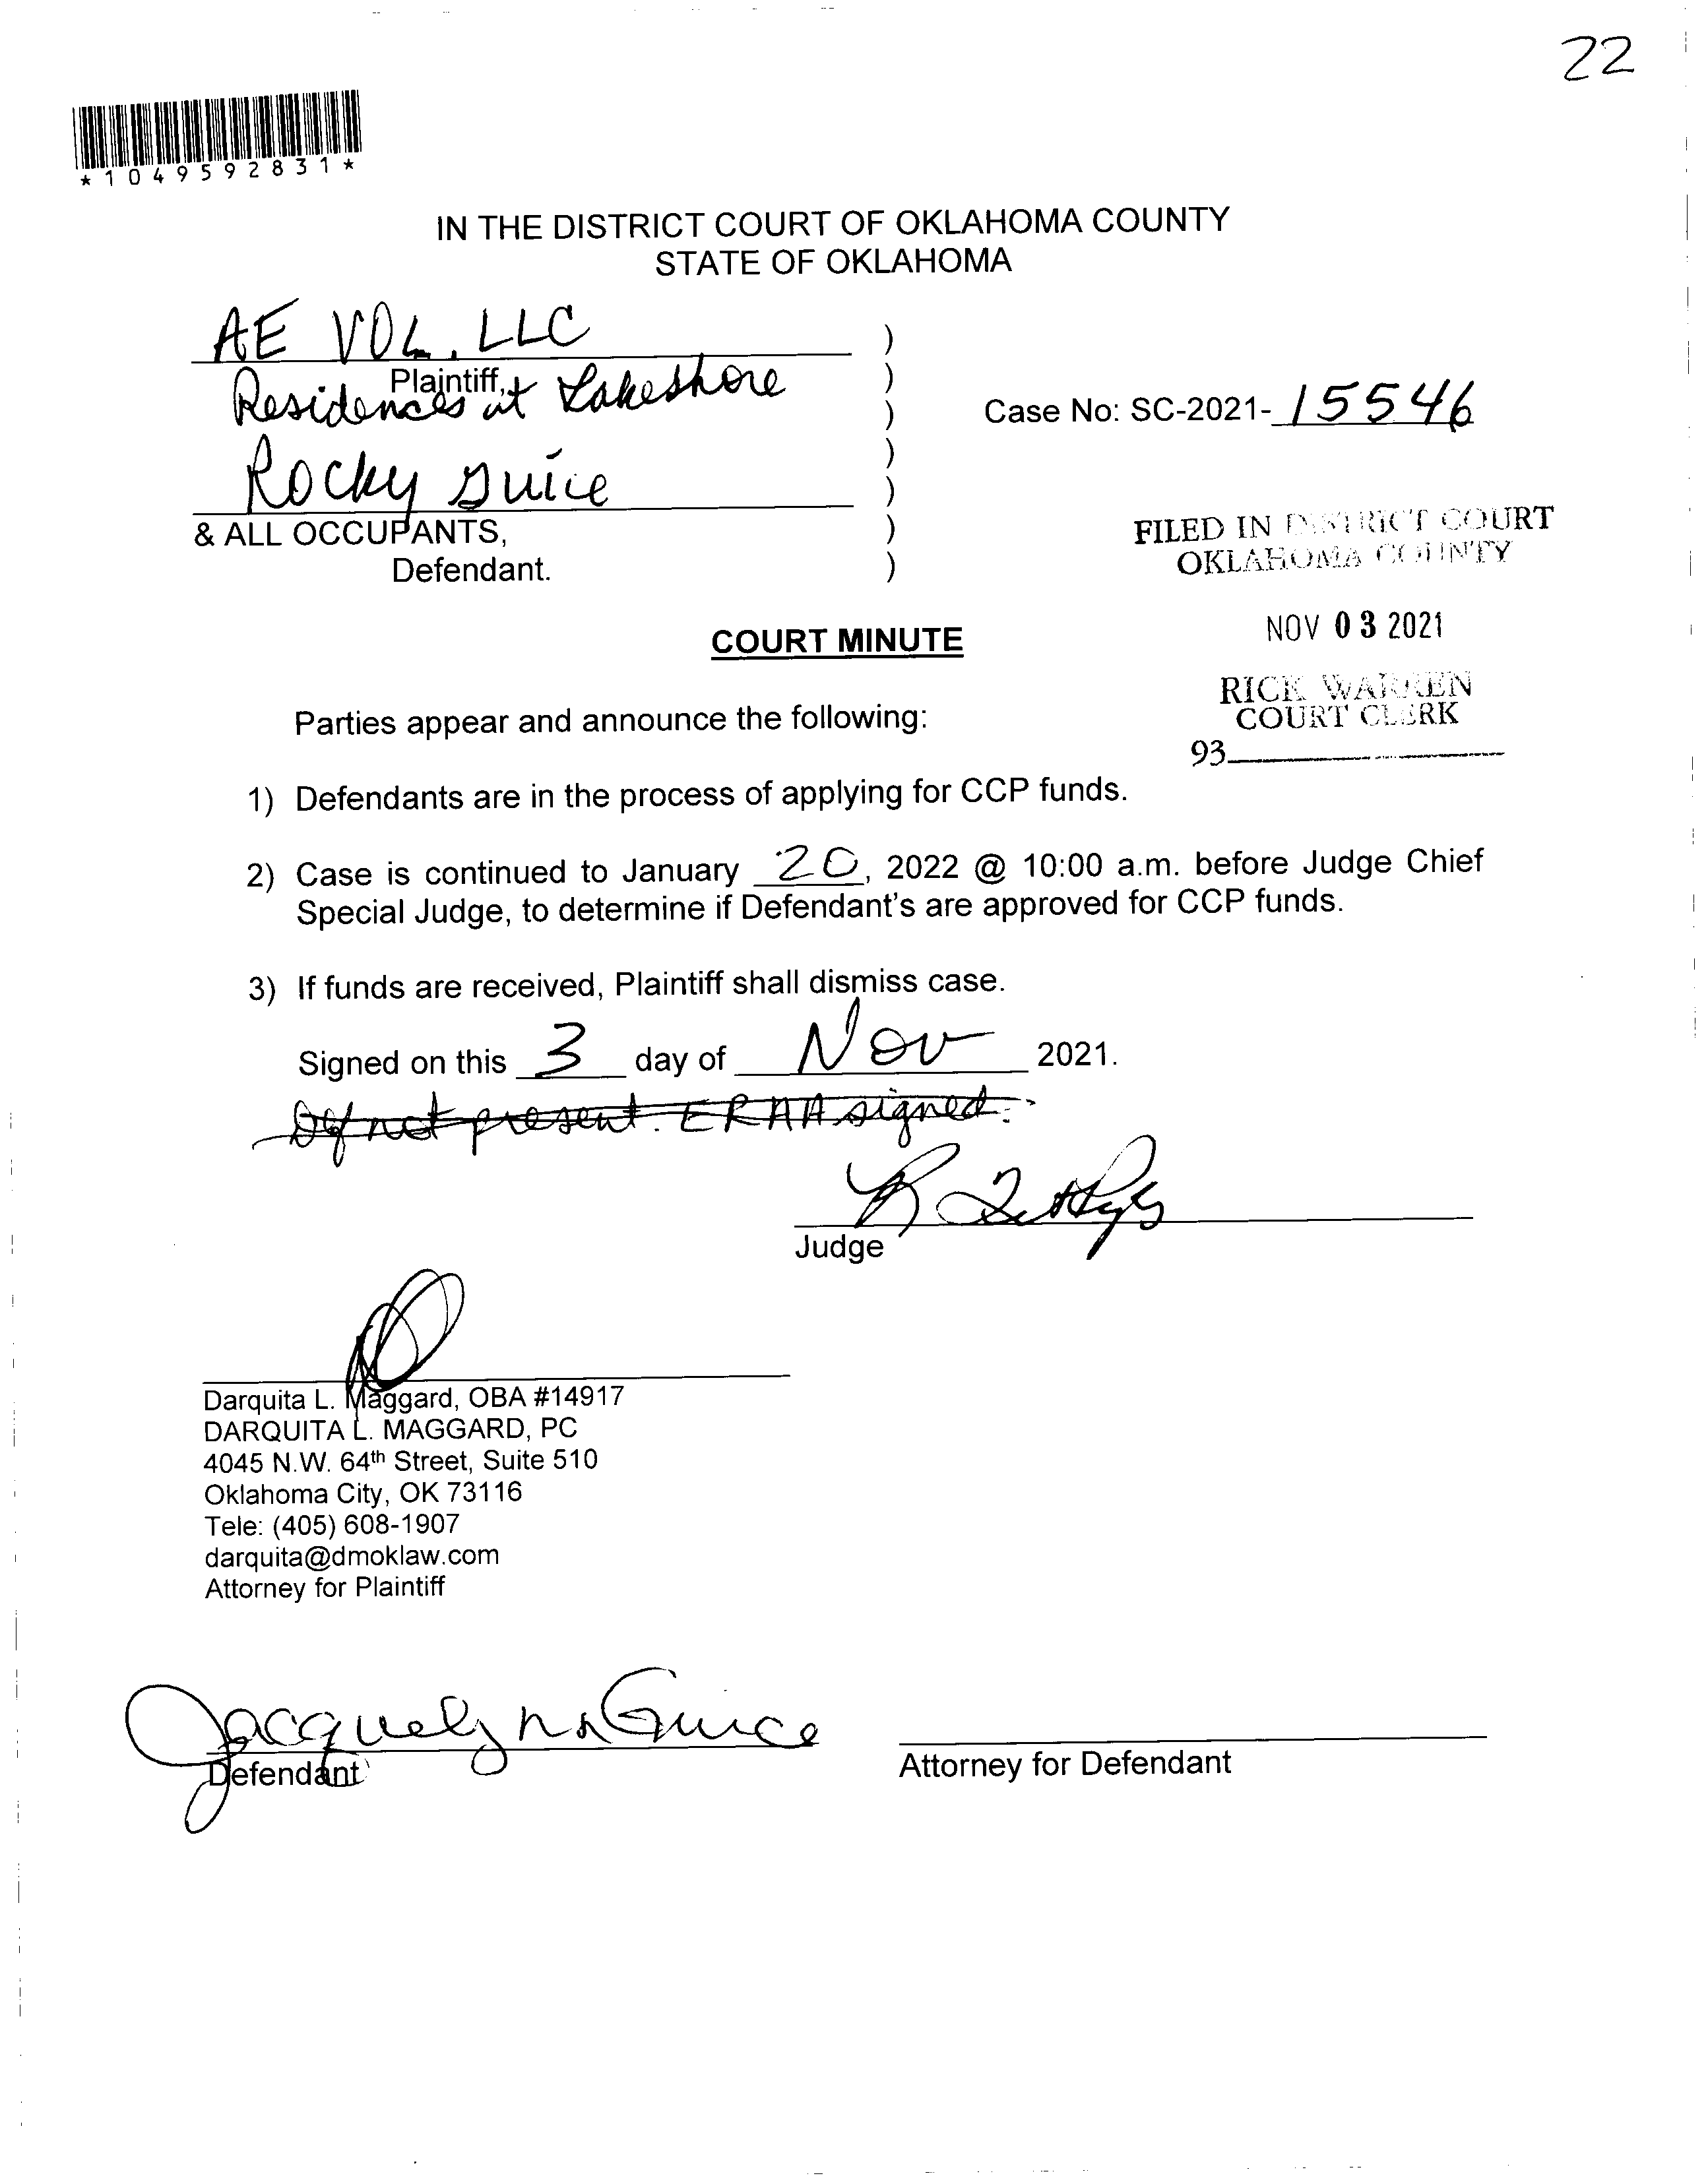 22
*1049592831*
IN THE DISTRICT COURT OF OKLAHOMA COUNTY
STATE OF OKLAHOMA
AE VOL, LLC )
Plaintiff, )
Residences at Lakeshore )
Case No: SC-2021-15546
Rocky Guice )
& ALL OCCUPANTS, )
Defendant. )
FILED IN DISTRICT COURT
OKLAHOMA COUNTY
NOV 03 2021
RICK WARREN
COURT CLERK
93
COURT MINUTE
Parties appear and announce the following:
1) Defendants are in the process of applying for CCP funds.
2) Case is continued to January 20, 2022 @ 10:00 a.m. before Judge Chief
Special Judge, to determine if Defendant's are approved for CCP funds.
3) If funds are received, Plaintiff shall dismiss case.
Signed on this 3 day of Nov 2021.
Df not present. ERAA signed.
Judge
Darquita L. Maggard, OBA #14917
DARQUITA L. MAGGARD, PC
4045 N.W. 64th Street, Suite 510
Oklahoma City, OK 73116
Tele: (405) 608-1907
darquita@dmoklaw.com
Attorney for Plaintiff
Jacquelyn Guice
Defendant
Attorney for Defendant